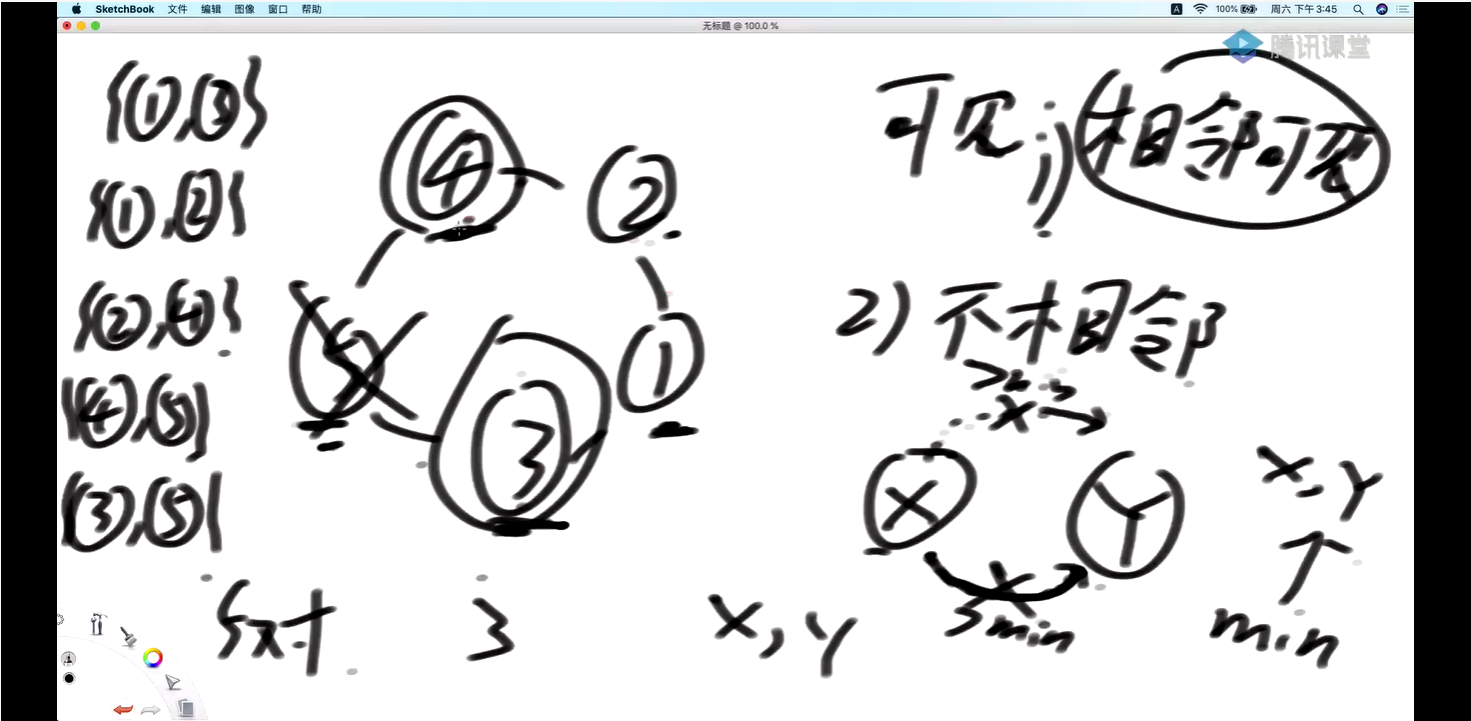 SketchBook 文件 编辑 图像 窗口 帮助 A 100% 周六 下午 3:45
无标题 @ 100.0 %
腾讯课堂
{①,③}
{①,②}
{②,④}
{④,⑤}
{③,⑤}
④ ②
5 ③ ①
5对 3
可见:1)相邻可见
2)不相邻
X Y
X, Y
X, Y
min